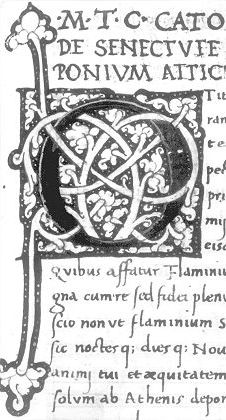 ·M·T·C·CATO
DE SENECTVTE
PONIVM ATTIC
O
Tit
ran
te
pe
pri
mi
eisd
Quibus affatur Flaminiu
gna cum re sed fidei plenu
scio non ut flaminium s
sic noctesq; diesq; Nou
animi tui et æquitatem
solum ab Athenis depor